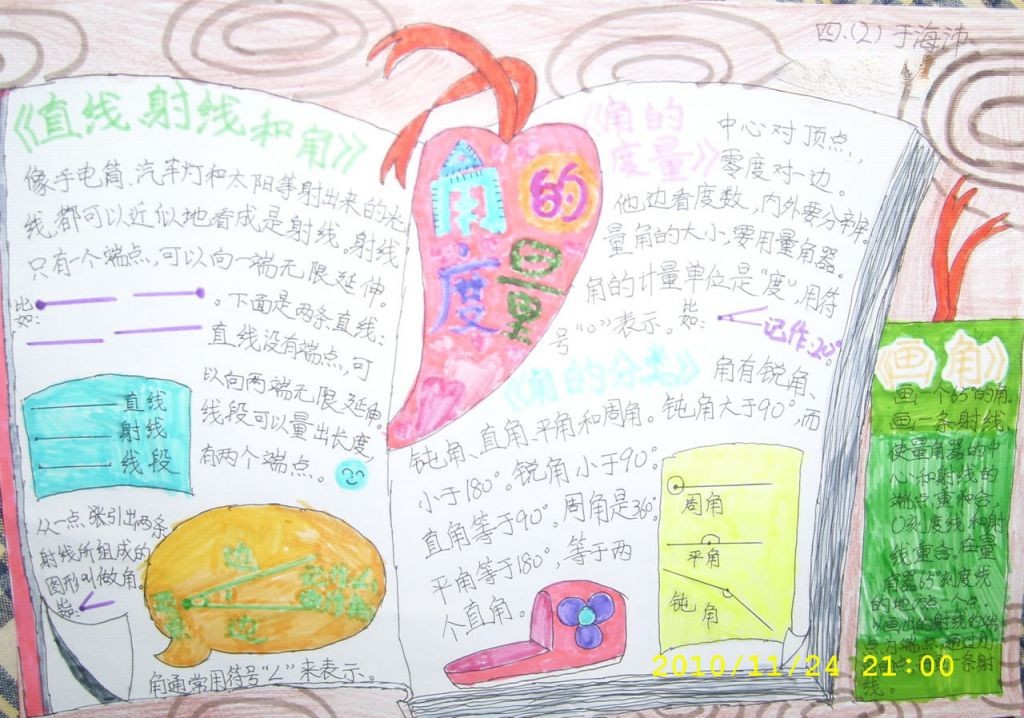 四.(2)于海沛
角的
度量
《直线射线和角》
像手电筒、汽车灯和太阳等射出来的光
线,都可以近似地看成是射线。射线
只有一个端点,可以向一端无限延伸。
比如:
。下面是两条直线:
直线没有端点,可
以向两端无限延伸。
线段可以量出长度,
有两个端点。
直线
射线
线段
从一点张引出两条
射线所组成的
图形叫做角。
边
边
角通常用符号“∠”来表示。
《角的
度量》
中心对顶点,
零度对一边。
他边看度数,内外要分辨。
量角的大小,要用量角器。
角的计量单位是“度”,用符
号“°”表示。比如:
记作:20°
《角的分类》
角有锐角、
钝角、直角、平角和周角。钝角大于90°,而
小于180°。锐角小于90°。
直角等于90°。周角是360°
平角等于180°,等于两
个直角。
周角
平角
钝角
《画角》
画一个65°的角.
画一条射线,
使量角器的中
心和射线的
端点重和合,
0刻度线和射
线重合。在量
角器65°刻度线
的地方点一个点.
线。
2010/11/24 21:00